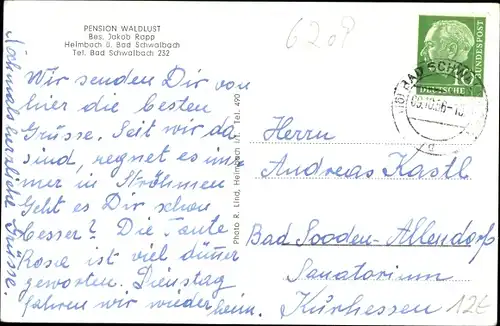 PENSION WALDLUST
Bes. Jakob Rapp
Heimbach ü. Bad Schwalbach
Tel. Bad Schwalbach 232
Wir senden Dir von
hier die besten
Grüsse. Seit wir da
sind, regnet es im-
mer in Ströhmen
Geht es Dir schon
besser? Die Tante
Rosa ist viel dünner
geworden. Dienstag
fahren wir wieder heim.
Nochmals herzliche Grüsse.
Photo R. Lind, Heimbach, Tel. 490
6209
DEUTSCHE
BUNDESPOST
BAD SCHW
Herrn
Andreas Kastl
Bad Sooden-Allendorf
Sanatorium
Kurhessen
12€